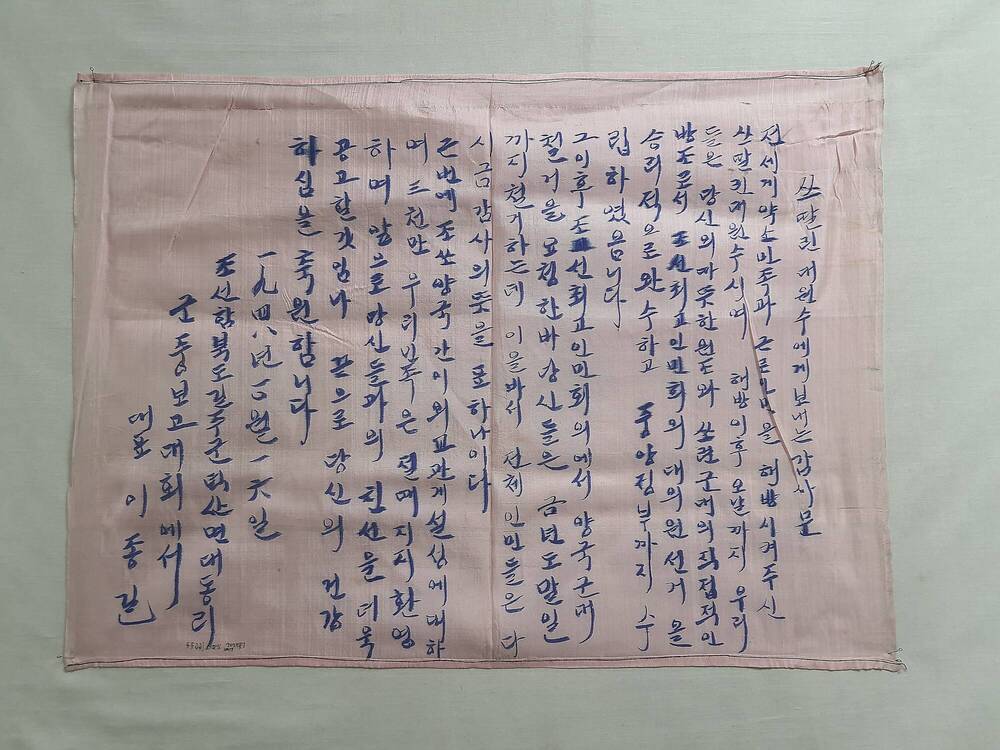 쓰딸린 대원수에게 보내는 감사문
전세게 약소민족과 근로인민을 해방시켜주신
쓰딸린 대원수시여 해방이후 오날까지 우리
들은 당신의 따뜻한 원도와 쏘련군대의 직접적인
방조로서 조선최고인민회의 대의원선거을
승리적으로 와수하고 중앙정부까지 수
립하였음니다
그이후 조선최고인민회의에서 양국군대
철거을 요청한바 당신들은 금년도말일
까지 철거하는데 이을바서 전체인민들은 다
시금 감사의 뜻을 표하나이다
근번에 조쏘 양국간이 외교관게설성에 대하
며 三천만 우리민족은 절때지지 환영
하며 앞으로 당신들과의 친선을 더욱
공고할것임니 끝으로 당신의 건강
하심을 축원함니다
一九四八년 一○월 一六일
조선함북도길주군덕산면대동리
군중보고대회에서
대표 이종길